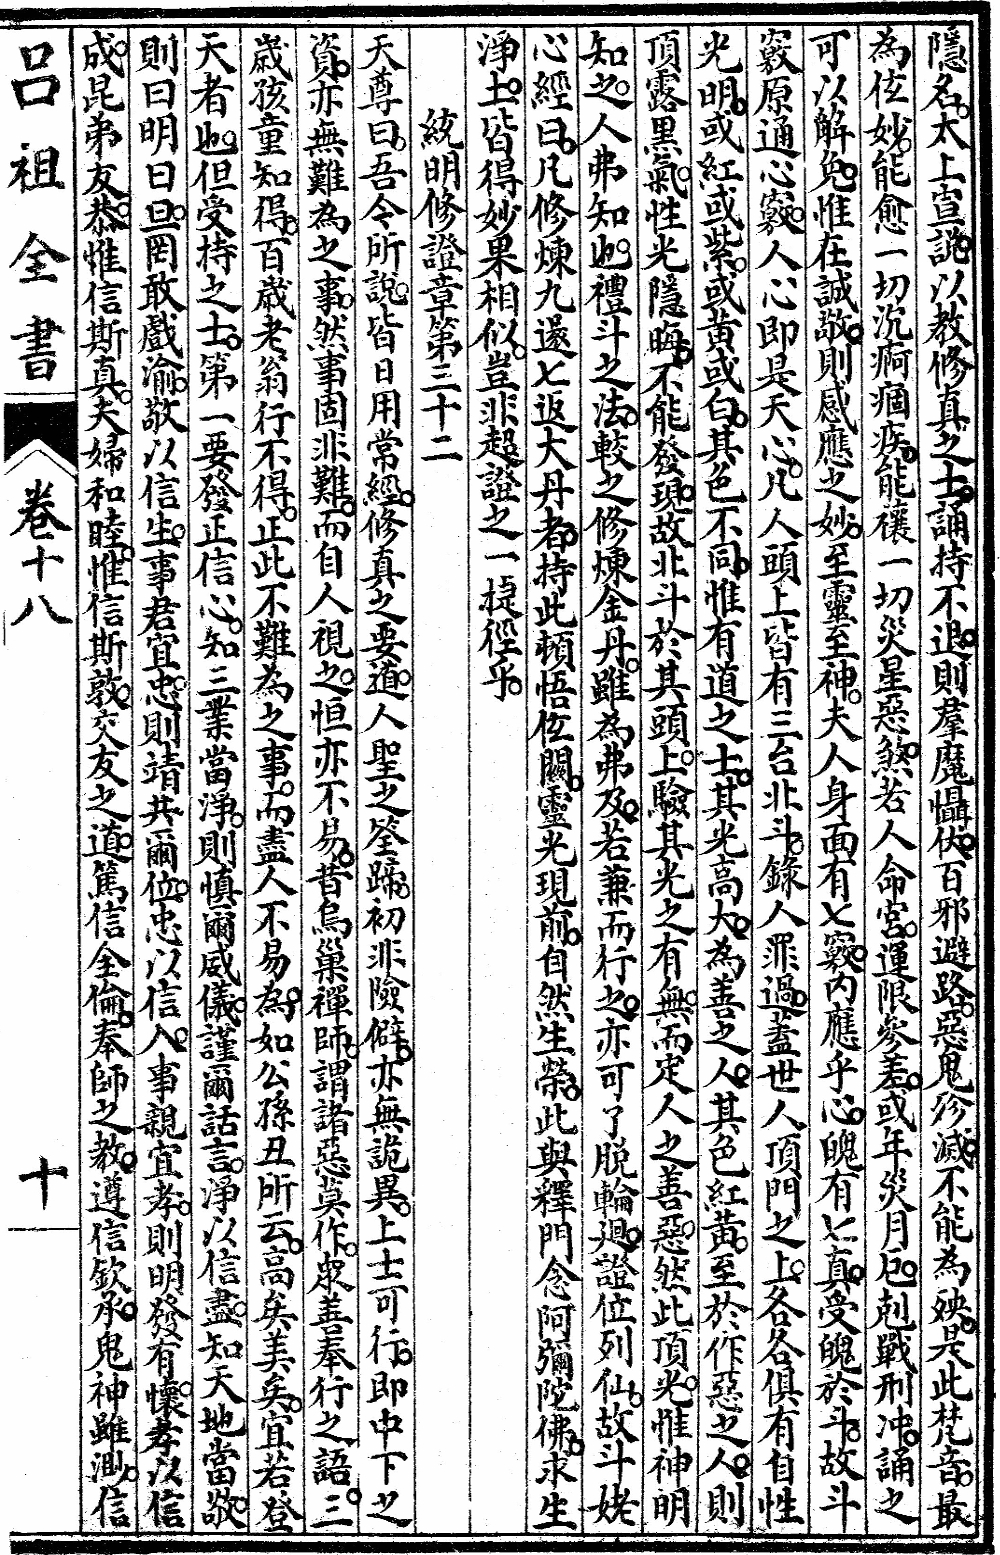 隱名。太上宣說。以教修真之士。誦持不退。則羣魔懾伏。百邪避路。惡鬼殄滅。不能為殃。是此梵音。最
為佐妙。能愈一切沉痾痼疾。能禳一切災星惡煞。若人命宮。運限參差。或年災月厄。剋戰刑冲。誦之
可以解免。惟在誠敬。則感應之妙。至靈至神。夫人身面有七竅。內應乎心。魄有七真。受魄於斗。故斗
竅原通心竅。人心即是天心。凡人頭上皆有三台北斗。錄人罪過。蓋世人頂門之上。各各俱有自性
光明。或紅或紫。或黃或白。其色不同。惟有道之士。其光高大。為善之人。其色紅黃。至於作惡之人。則
頂露黑氣。性光隱晦。不能發現。故北斗於其頭上。驗其光之有無。而定人之善惡。然此頂光。惟神明
知之。人弗知也。禮斗之法。較之修煉金丹。雖為弗及。若兼而行之。亦可了脫輪迴。證位列仙。故斗姥
心經曰。凡修煉九還七返大丹者。持此頓悟佐關。靈光現前。自然生榮。此與釋門念阿彌陀佛。求生
淨土。皆得妙果相似。豈非超證之一捷徑乎。
統明修證章第三十二
天尊曰。吾今所說。皆日用常經。修真之要道。人聖之筌蹄。初非險僻。亦無詭異。上士可行。即中下之
資。亦無難為之事。然事固非難。而自人視之。恒亦不易。昔烏巢禪師。謂諸惡莫作。眾善奉行之語。三
歲孩童知得。百歲老翁行不得。正此不難為之事。而盡人不易為。如公孫丑所云。高矣美矣。宜若登
天者也。但受持之士。第一要發正信心。知三業當淨。則慎爾威儀。謹爾話言。淨以信盡。知天地當敬。
則曰明曰旦。罔敢戲渝。敬以信生。事君宜忠。則靖共爾位。忠以信入。事親宜孝。則明發有懷。孝以信
成。昆弟友恭。惟信斯真。夫婦和睦。惟信斯敦。交友之道。篤信全倫。奉師之教。遵信欽承。鬼神雖渺。信
呂祖全書
卷十八
十